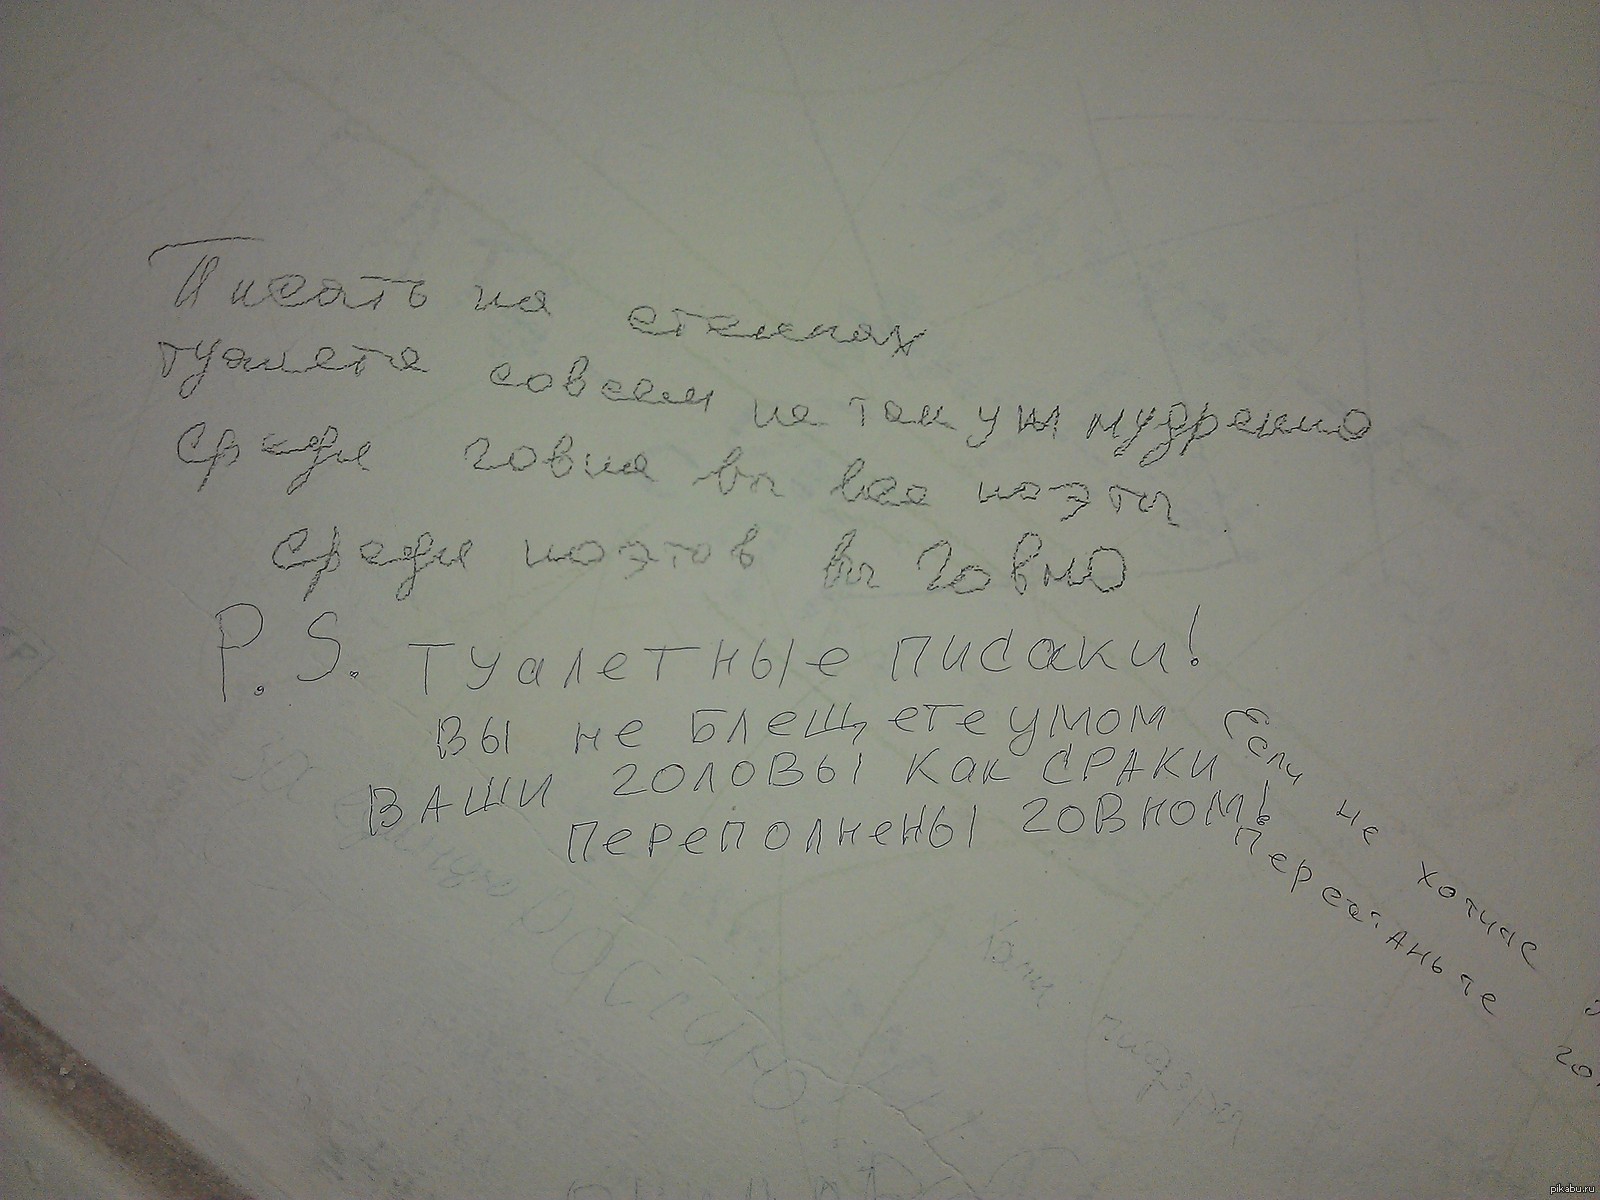 Писать на стенках
туалета совсем не так уж мудрено
среди говна вы все поэты
среди поэтов вы говно
P.S. Туалетные писаки!
Вы не блещете умом
Ваши головы как сраки
переполнены говном!
Если не хотите
перестаньте
pikabu.ru